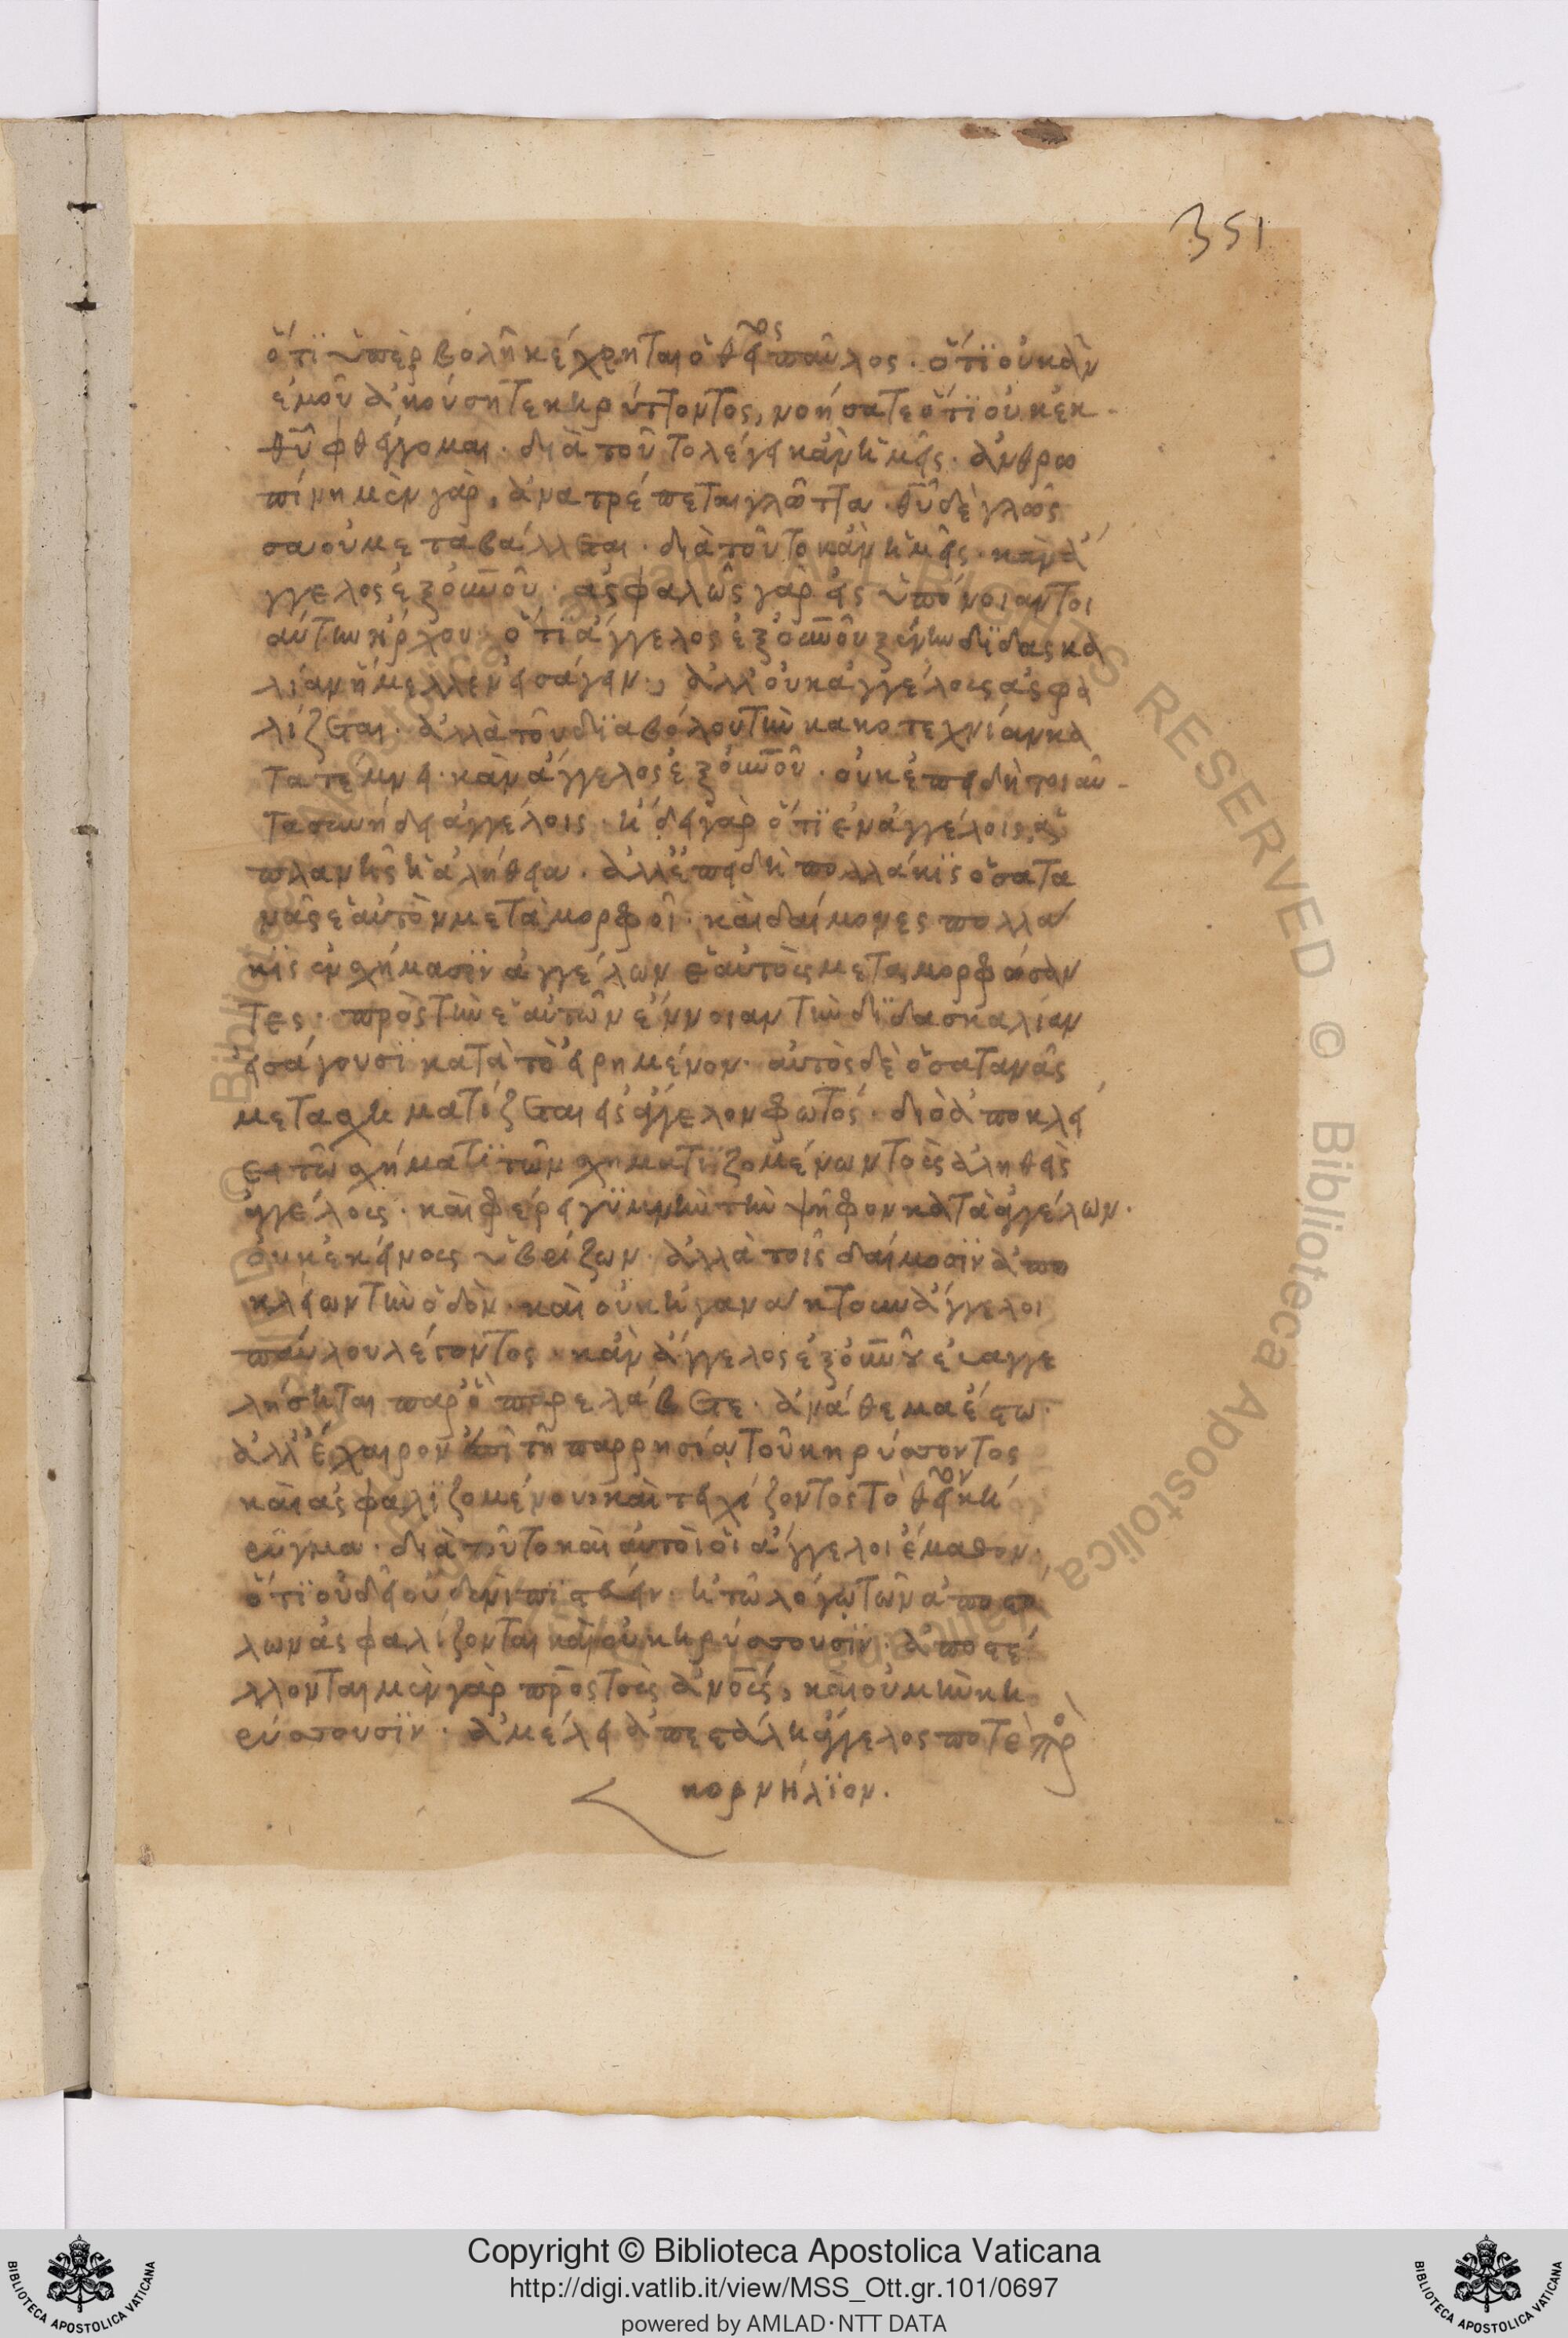 351
ὅτι ὑπερβολῆ κέχρηται ὁ θεῖος παῦλος. ὅτι οὐκ ἂν
ἐμοῦ ἀκούσητε κηρύττοντος, νοήσατε ὅτι οὐκ ἐκ
θῦ φθέγγομαι. διὰ τοῦτο λέγει κἂν ἡμεῖς. ἀνθρω
πίνη μὲν γὰρ, ἀνατρέπεται γλῶττα. θῦ δὲ γλῶσ
σα οὐ μεταβάλλεται. διὰ τοῦτο κἂν ἡμεῖς. κἂν ἄ
γγελος ἐξ οὐνοῦ. ἀσφαλῶς γὰρ εἰς ὑπόνοιαν τοι
αύτην ὅτι ἄγγελος ἐξ οὐνοῦ ξένην διδασκα
λίαν ἤμελλεν εἰσάγειν, ἀλλ' οὐκ ἀγγέλοις ἀσφα
λίζεται. ἀλλὰ τοῦ διαβόλου τὴν κακοτεχνίαν κα
τατέμνει. κἂν ἄγγελος ἐξ οὐνοῦ. οὐκ ἐπειδὴ τοιαῦ
τα συνήδει ἀγγέλοις. ἤδει γὰρ ὅτι ἐν ἀγγέλοις ἀ
πλανὴς ἡ ἀλήθεια. ἀλλ' ἐπειδὴ πολλάκις ὁ σατα
νᾶς ἑαυτὸν μεταμορφοῖ. καὶ δαίμονες πολλά
κις ἐν σχήμασιν ἀγγέλων ἑαυτοὺς μεταμορφώσαν
τες. πρὸς τὴν ἑαυτῶν ἔννοιαν τὴν διδασκαλίαν
εἰσάγουσι κατὰ τὸ εἰρημένον. αὐτὸς δὲ ὁ σατανᾶς
μετασχηματίζεται εἰς ἄγγελον φωτός. διὸ ἀποκλεί
ει τῶ σχήματι τῶν σχηματιζομένων τοὺς ἀληθεῖς
ἀγγέλους. καὶ φέρει γυμνὴν τὴν ψῆφον κατὰ ἀγγέλων.
οὐκ ἐκείνους ὑβρίζων. ἀλλὰ τοῖς δαίμοσιν ἀπο
κλείων τὴν ὁδόν. καὶ οὐκ ἠγανάκτουν ἄγγελοι
παύλου λέγοντος. κἂν ἄγγελος ἐξ οὐνοῦ εὐαγγε
λίσηται παρ' ὃ παρελάβετε. ἀνάθεμα ἔστω.
ἀλλ' ἔχαιρον ἐπὶ τῆ παρρησία τοῦ κηρύσσοντος
καὶ ἀσφαλιζομένου καὶ τειχίζοντος τὸ θεῖον κή
ρυγμα. διὰ τοῦτο καὶ αὐτοὶ οἱ ἄγγελοι ἔμαθον.
ὅτι οὐδεὶς τῶ λόγω τῶν ἀποστό
λων ἀσφαλίζονται καὶ οὐ κηρύσσουσιν. ἀποστέ
λλονται μὲν γὰρ πρὸς τοὺς ἀνους, καὶ οὐ μὴν κη
ρύσσουσιν. ἀμέλει ἀπεστάλη ἄγγελος ποτὲ πρ
κορνήλιον.
Copyright © Biblioteca Apostolica Vaticana
http://digi.vatlib.it/view/MSS_Ott.gr.101/0697
powered by AMLAD·NTT DATA
BIBLIOTECA APOSTOLICA VATICANA
BIBLIOTECA APOSTOLICA VATICANA